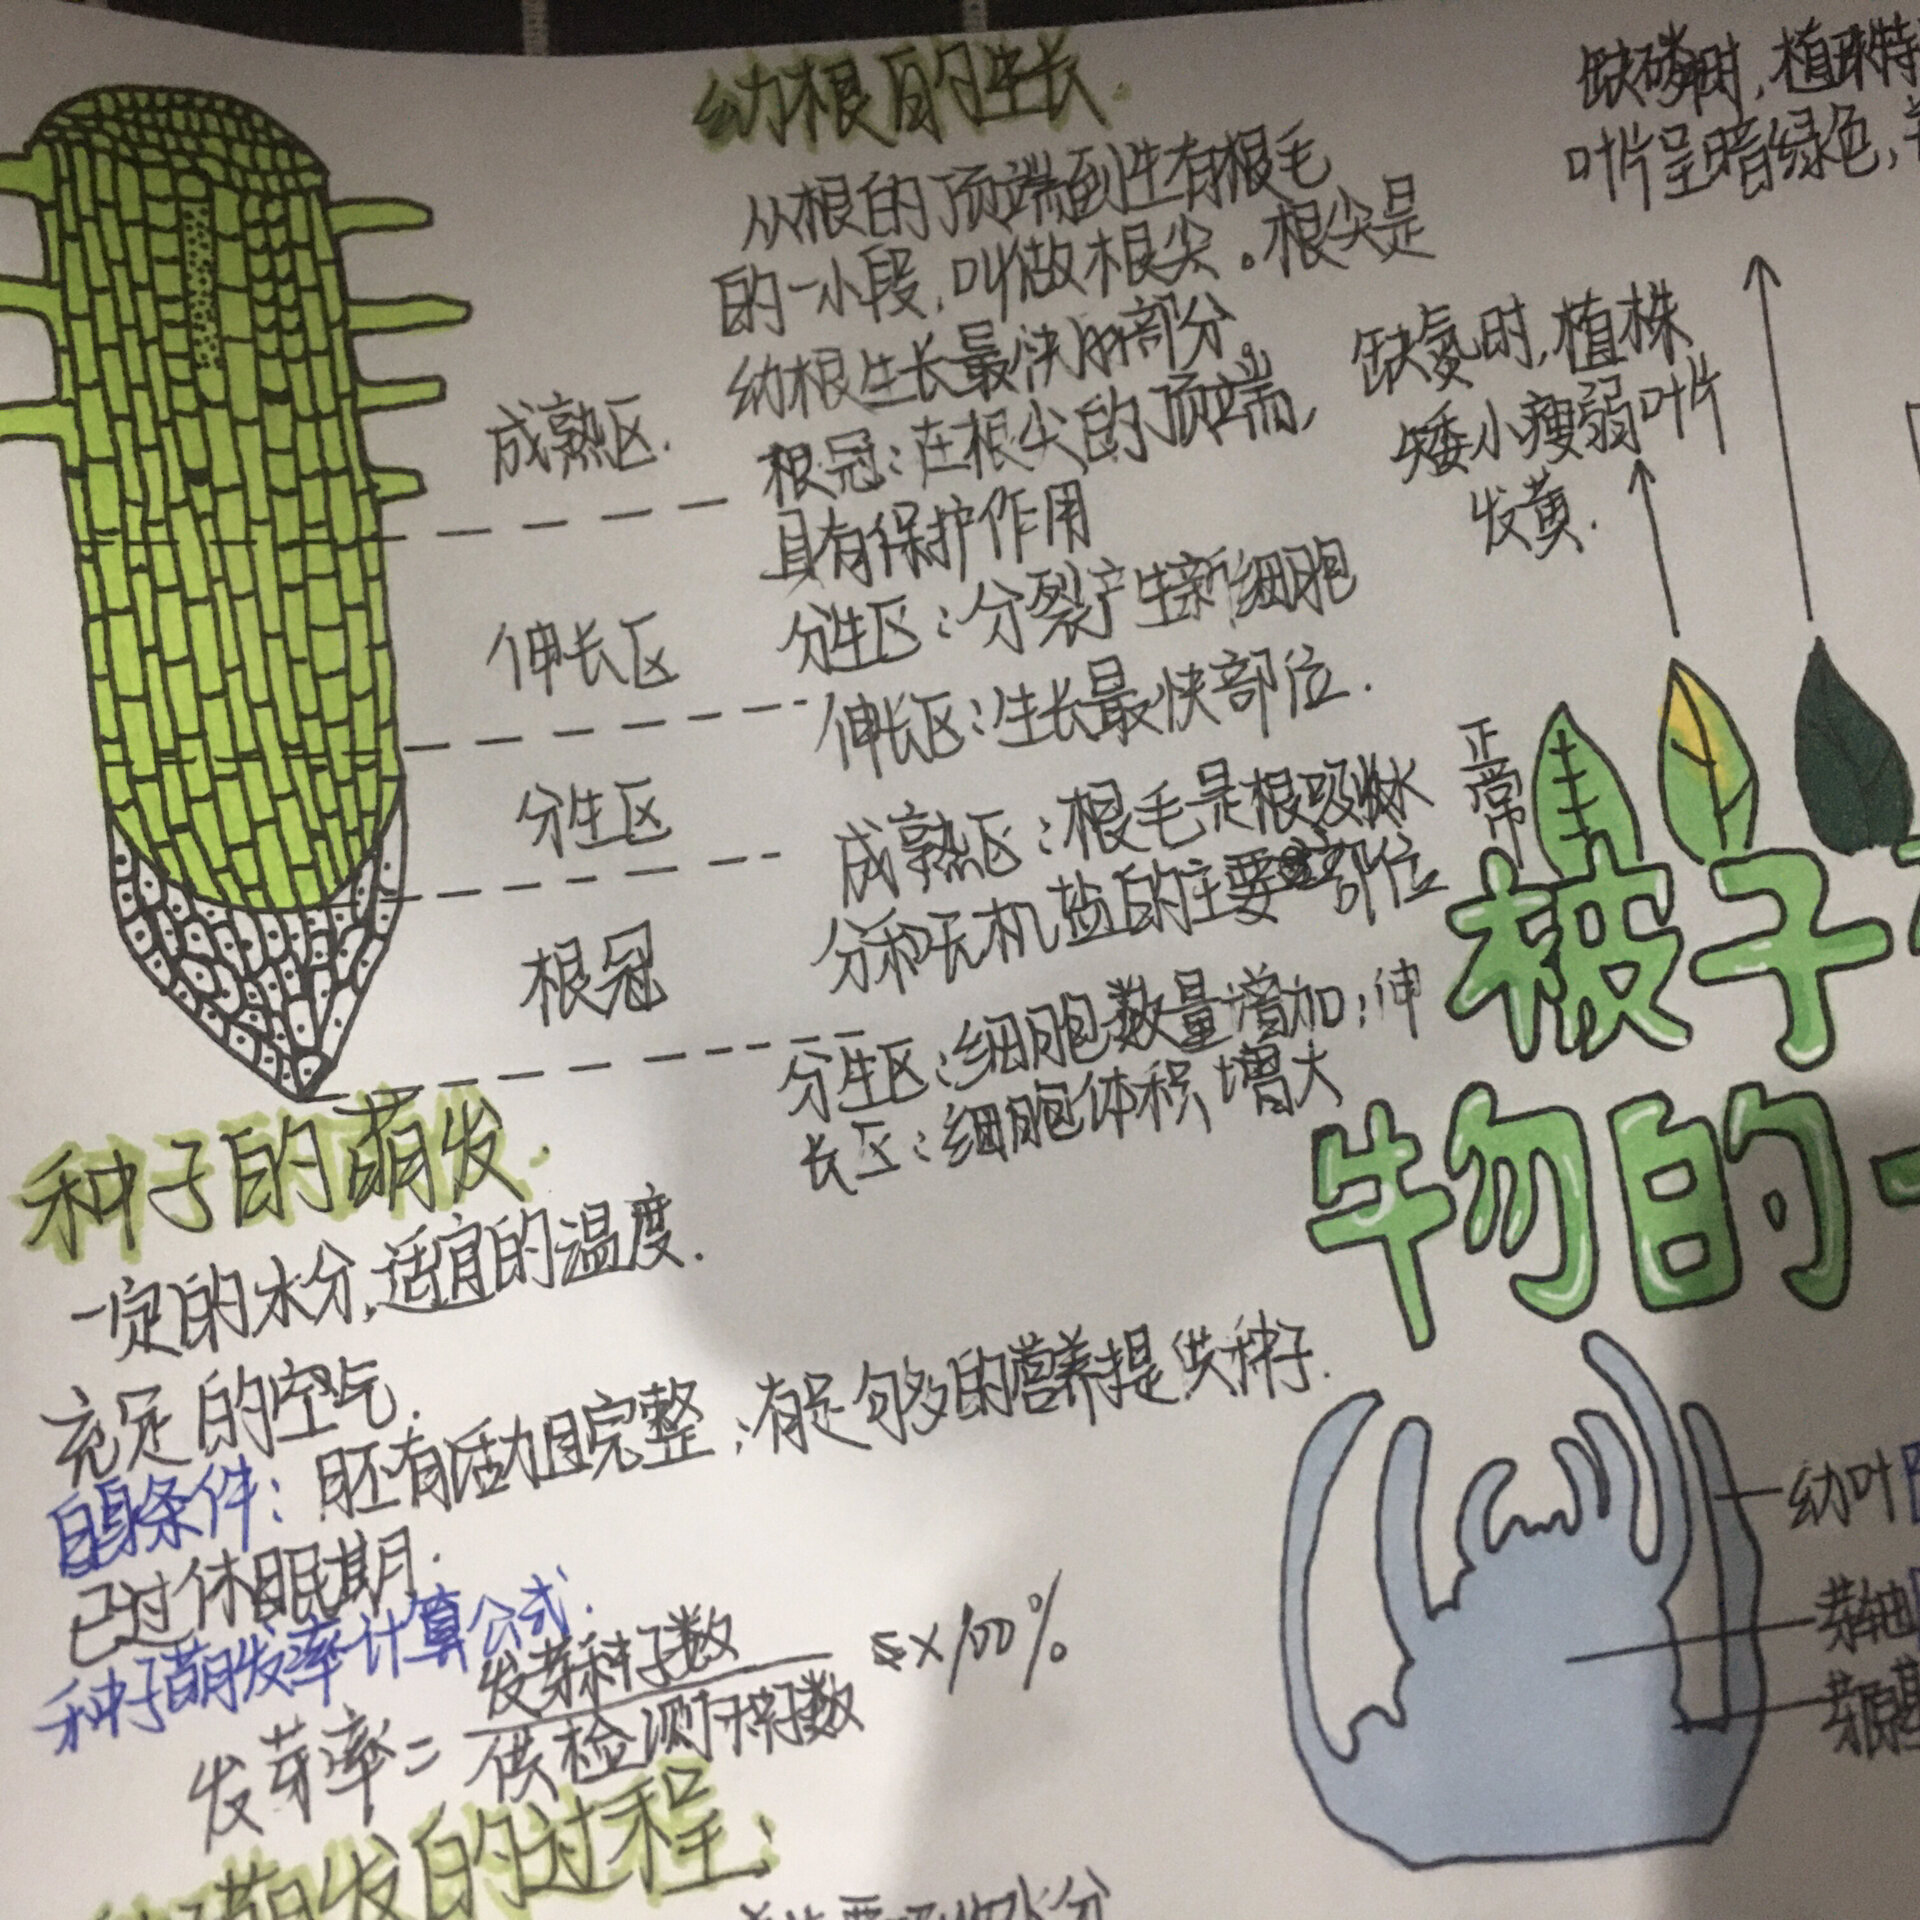 幼根的生长.
从根的顶端到生有根毛
的一小段,叫做根尖。根尖是
幼根生长最快的部分。
根冠:在根尖的顶端,
具有保护作用
分生区:分裂产生新细胞
伸长区:生长最快部位.
成熟区:根毛是根吸收水
分和无机盐的主要部位
分生区:细胞数量增加;伸
长区:细胞体积增大
成熟区.
伸长区
分生区
根冠
种子的萌发.
一定的水分,适宜的温度.
充足的空气.
自身条件:胚有活力且完整;有足够的营养提供种子.
已过休眠期.
种子萌发率计算公式.
发芽率=发芽种子数/供检测种子数 ×100%
种子萌发的过程:
缺磷时,植株特
叶片呈暗绿色,
缺氮时,植株
矮小瘦弱叶片
发黄.
正常
被子
物的一
幼叶
芽轴
芽原基